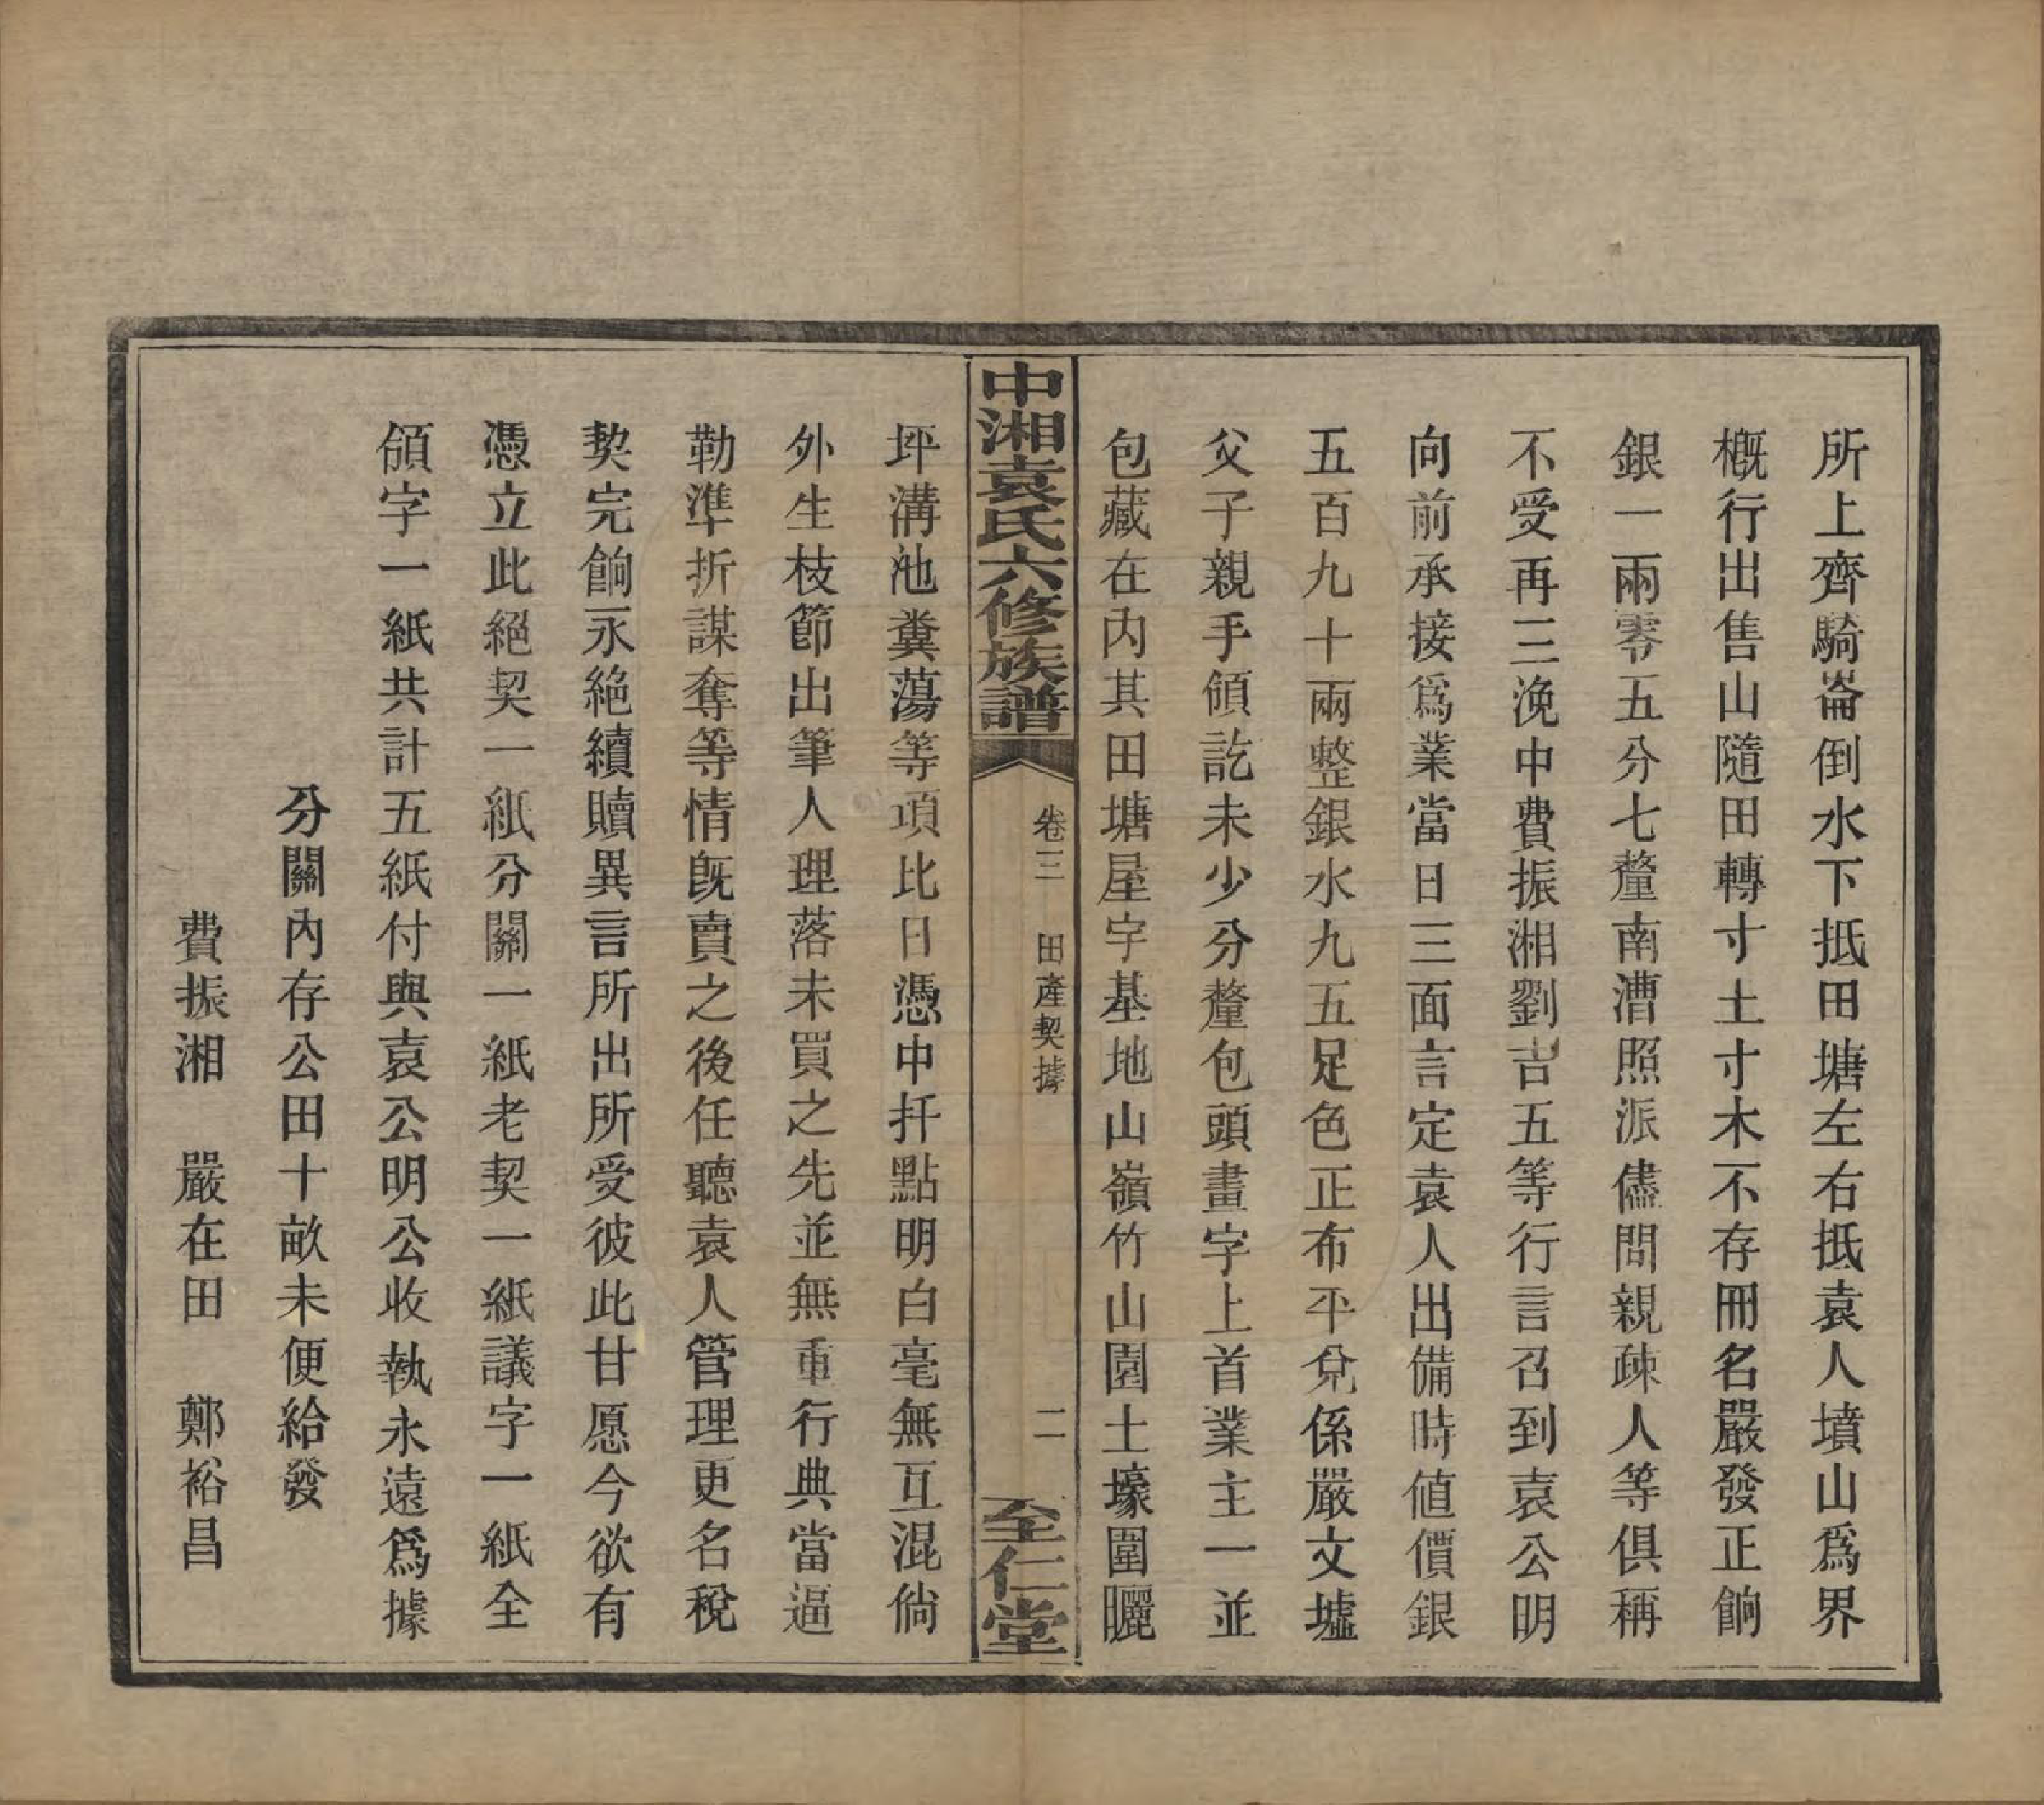 所上齊騎崙倒水下抵田塘左右抵袁人墳山爲界
槪行出售山隨田轉寸土寸木不存冊名嚴發正餉
銀一兩零五分七釐南漕照派儘問親疎人等俱稱
不受再三浼中費振湘劉吉五等行言召到袁公明
向前承接爲業當日三面言定袁人出備時値價銀
五百九十兩整銀水九五足色正布平兌係嚴文墟
父子親手領訖未少分釐包頭畫字上首業主一並
包藏在內其田塘屋宇基地山嶺竹山園土壕圍曬
中湘袁氏六修族譜
卷三　田產契據
二
至仁堂
坪溝池糞蕩等項比日憑中扦點明白毫無互混倘
外生枝節出筆人理落未買之先並無重行典當逼
勒準折謀奪等情旣賣之後任聽袁人管理更名稅
契完餉永絶續贖異言所出所受彼此甘愿今欲有
憑立此絕契一紙分關一紙老契一紙議字一紙全
領字一紙共計五紙付與袁公明公收執永遠爲據
分關內存公田十畝未便給發
費振湘　嚴在田　鄭裕昌